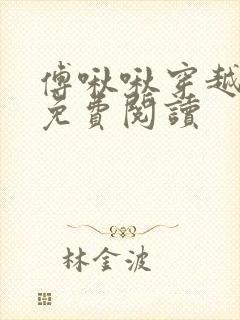 傅啾啾穿越
免費閱讀
林金波